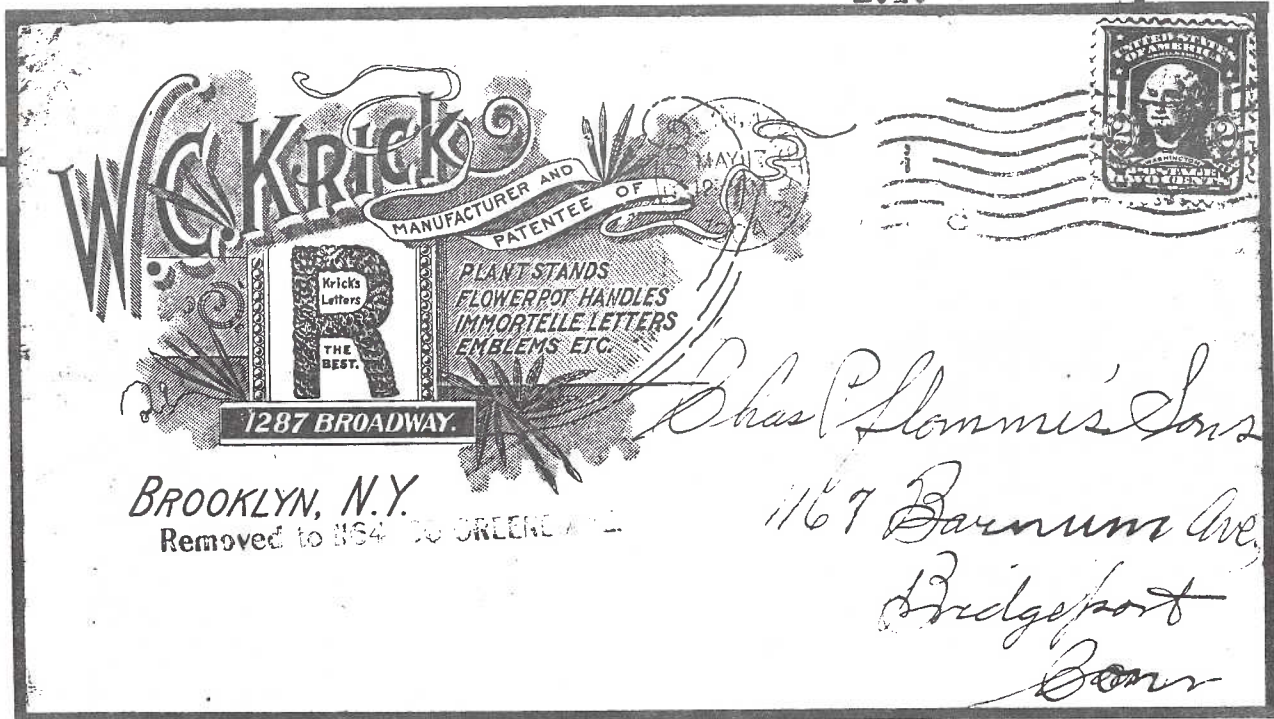 W.C. KRICK
MANUFACTURER AND
PATENTEE OF
Krick's
Letters
THE
BEST.
PLANT STANDS
FLOWERPOT HANDLES
IMMORTELLE LETTERS
EMBLEMS ETC.
1287 BROADWAY.
BROOKLYN, N.Y.
Removed to 1164 GREENE
MAY 13
UNITED STATES
OF AMERICA
2 2
WASHINGTON
Chas Pflomm's Sons
1167 Barnum Ave.
Bridgeport
Conn